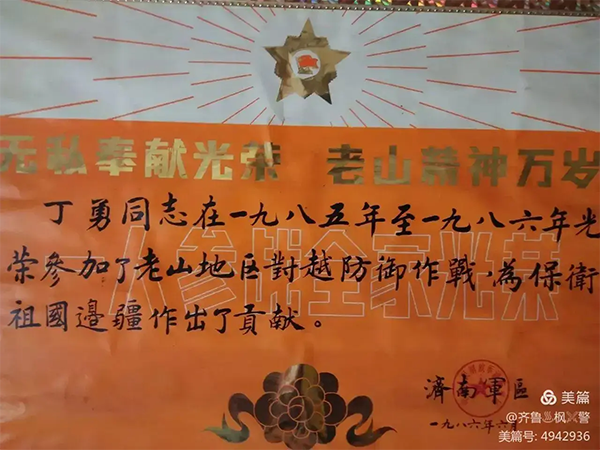 无私奉献光荣 老山精神万岁
丁勇同志在一九八五年至一九八六年光
荣參加了老山地区對越防御作戰,為保衛
一人参战全家光荣
祖國邊疆作出了貢献。
濟南軍區
一九八六年六月
美篇
@齐鲁 枫 警
美篇号: 4942936